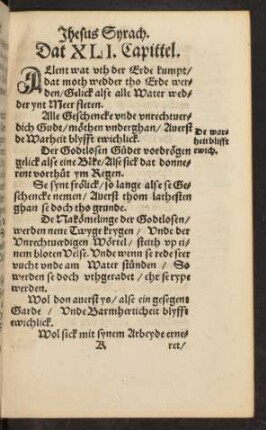 Jhesus Syrach.
Dat XLI. Capittel.
ALlent wat vth der Erde kumpt/
dat moth wedder tho Erde wer-
den/Gelick alse alle Water wed-
der ynt Meer fleten.
Alle Geschencke vnde vnrechtuer-
dich Gudt/ möthen vnderghan/ Auerst
de Warheit blyfft ewichlick.
De war-
heit blifft
ewich.
Der Godtlosen Güder vordrögen
gelick alse eine Bike/ Alse sick dat donne-
rent vorthüt ym Regen.
Se synt frölick/ so lange alse se Ge-
schencke nemen/ Auerst thom lathesten
ghan se doch tho grunde.
De Nakömelinge der Godtlosen/
werden nene Twyge krygen/ Vnde der
Vnrechtuerdigen Wörtel/ steith vp ei-
nem bloten Velse. Vnde wenn se rede seer
vucht vnde am Water stünden/ So
werden se doch vthgeradet/ ehr se rype
werden.
Wol don auerst ys/ alse ein gesegent
Garde/ Vnde Barmherticheit blyfft
ewichlick.
Wol sick mit synem Arbeyde erne-
K
ret/